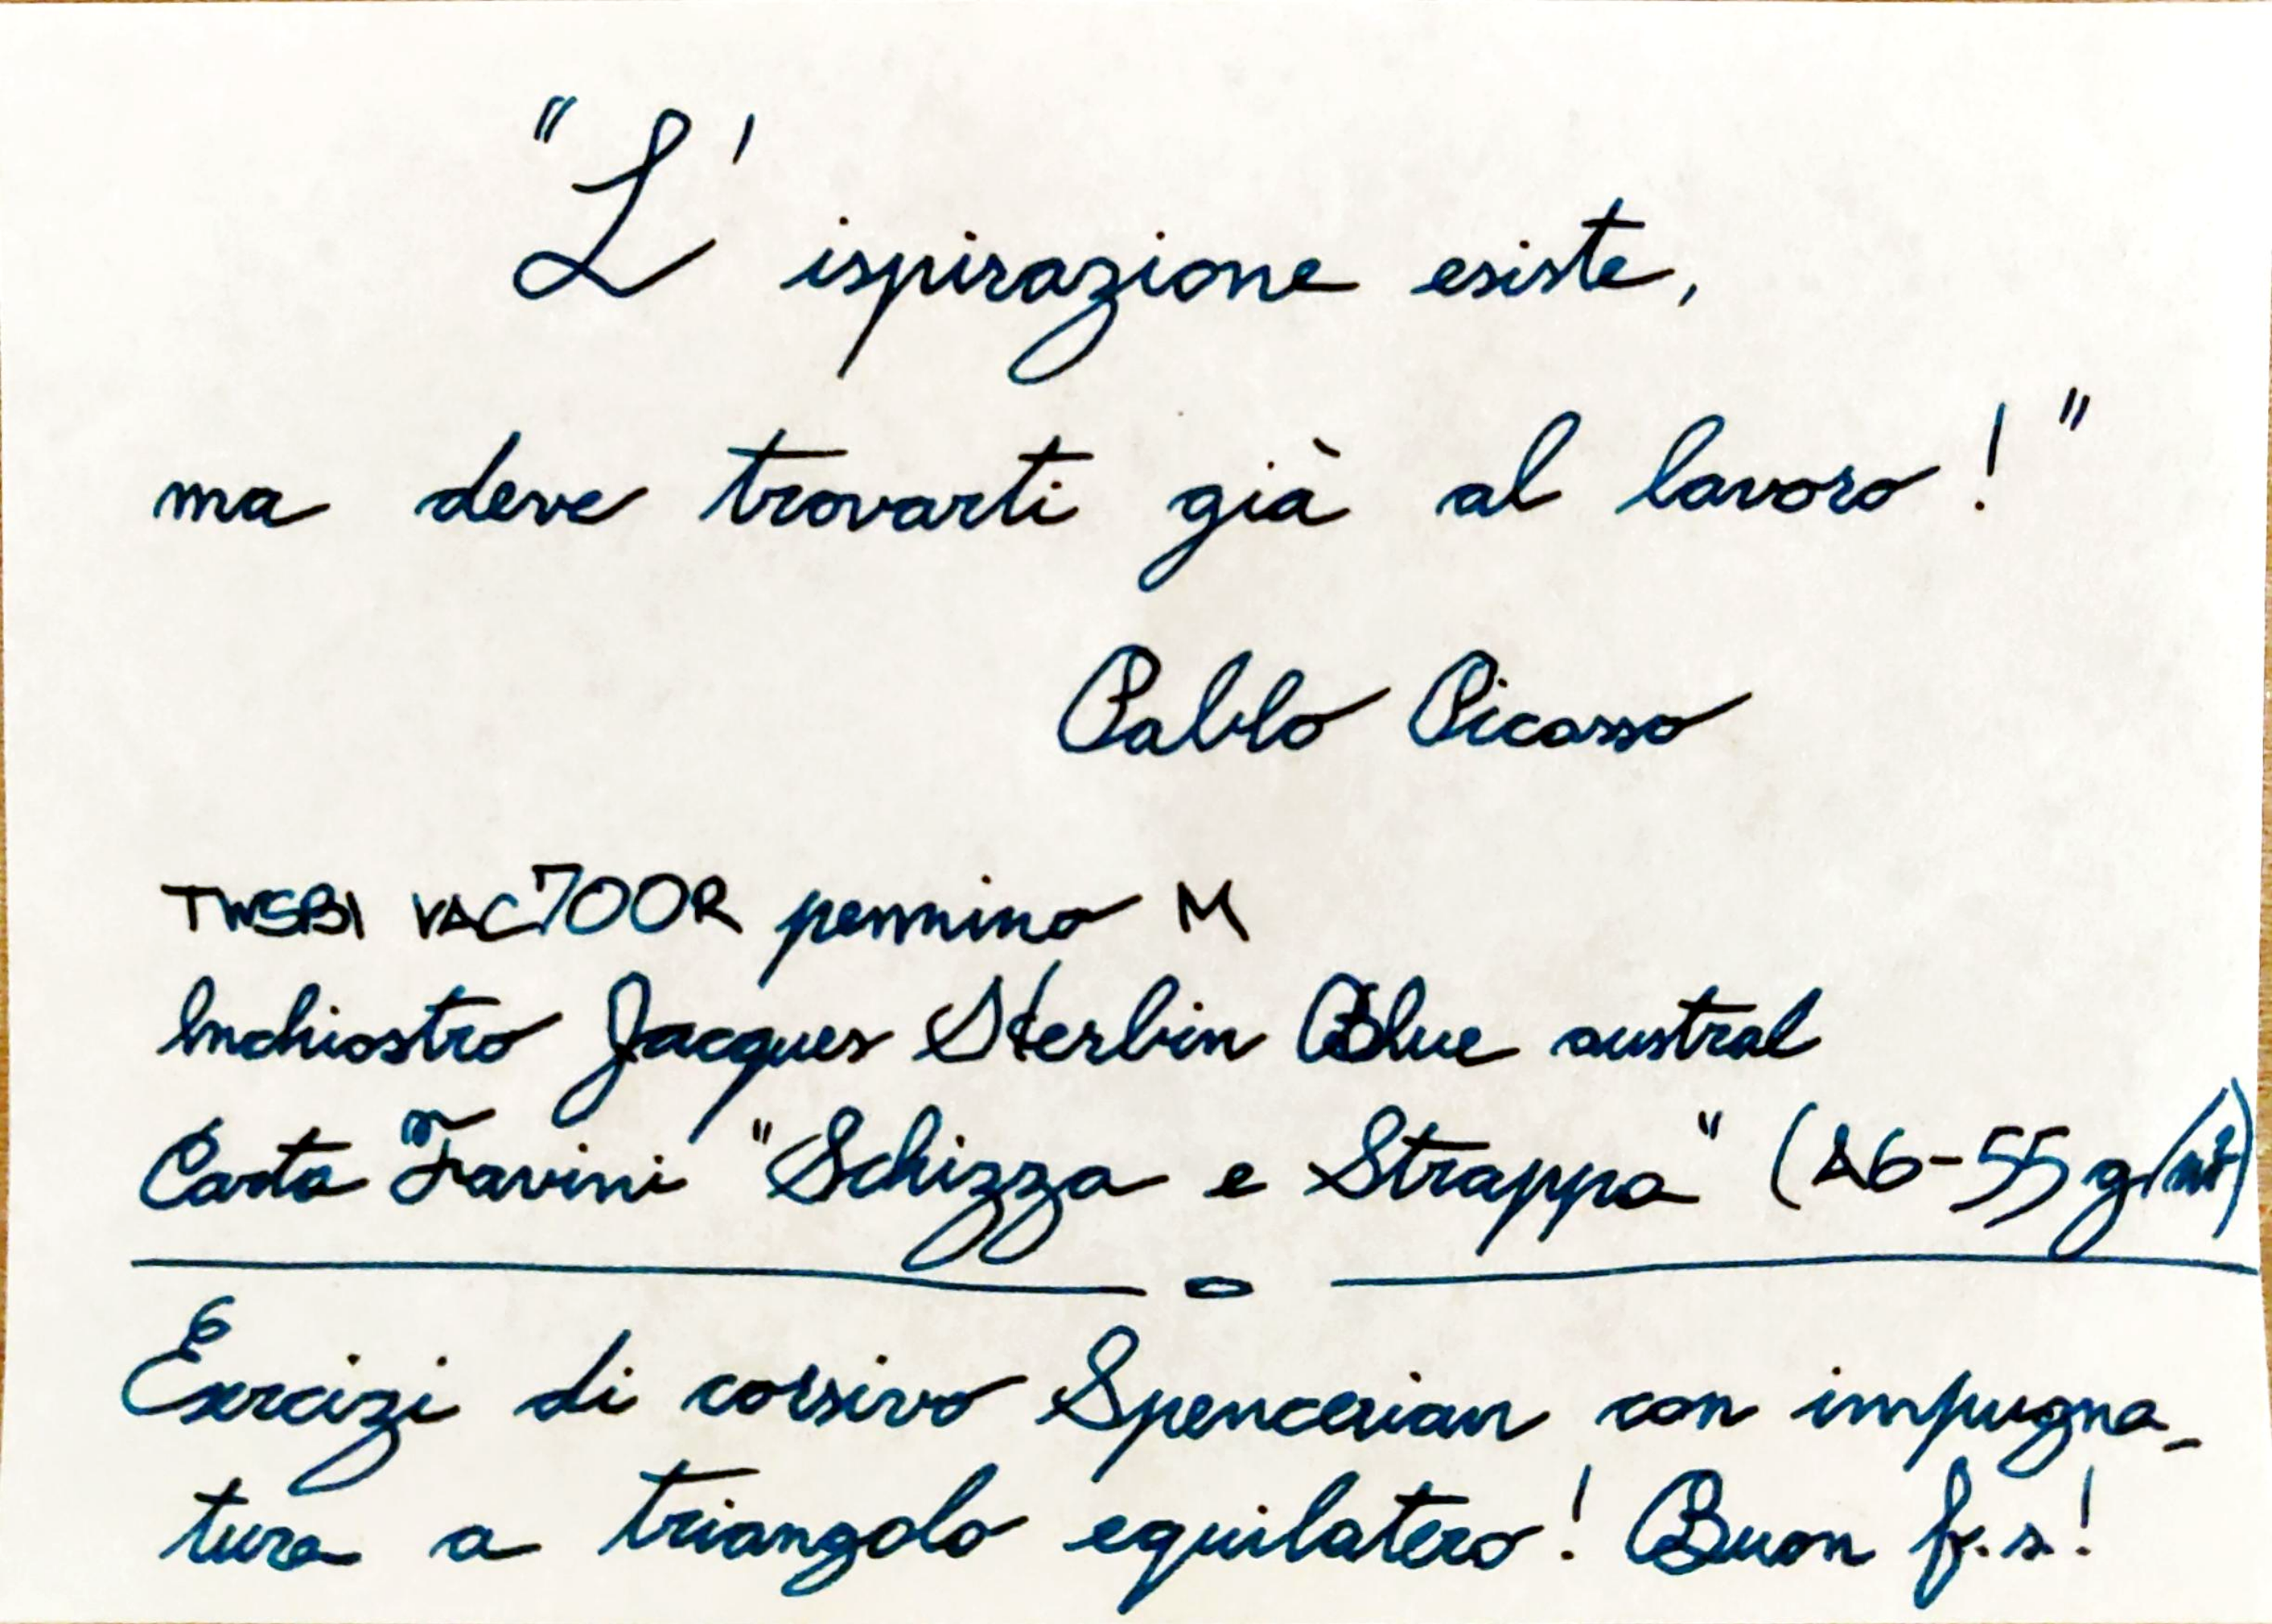 "L' ispirazione esiste,
ma deve trovarti già al lavoro!"
Pablo Picasso
TWSBI VAC700R pennino M
Inchiostro Jacques Herbin Blue austral
Carta Favini "Schizza e Strappa" (A6-55g/m²)
Esercizi di corsivo Spencerian con impugna_
tura a triangolo equilatero! Buon f.s!